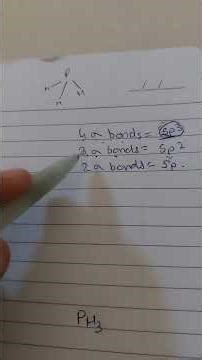 P
H H H
4 a bonds = sp3
3 a bonds = sp2
2 a bonds = sp.
PH3